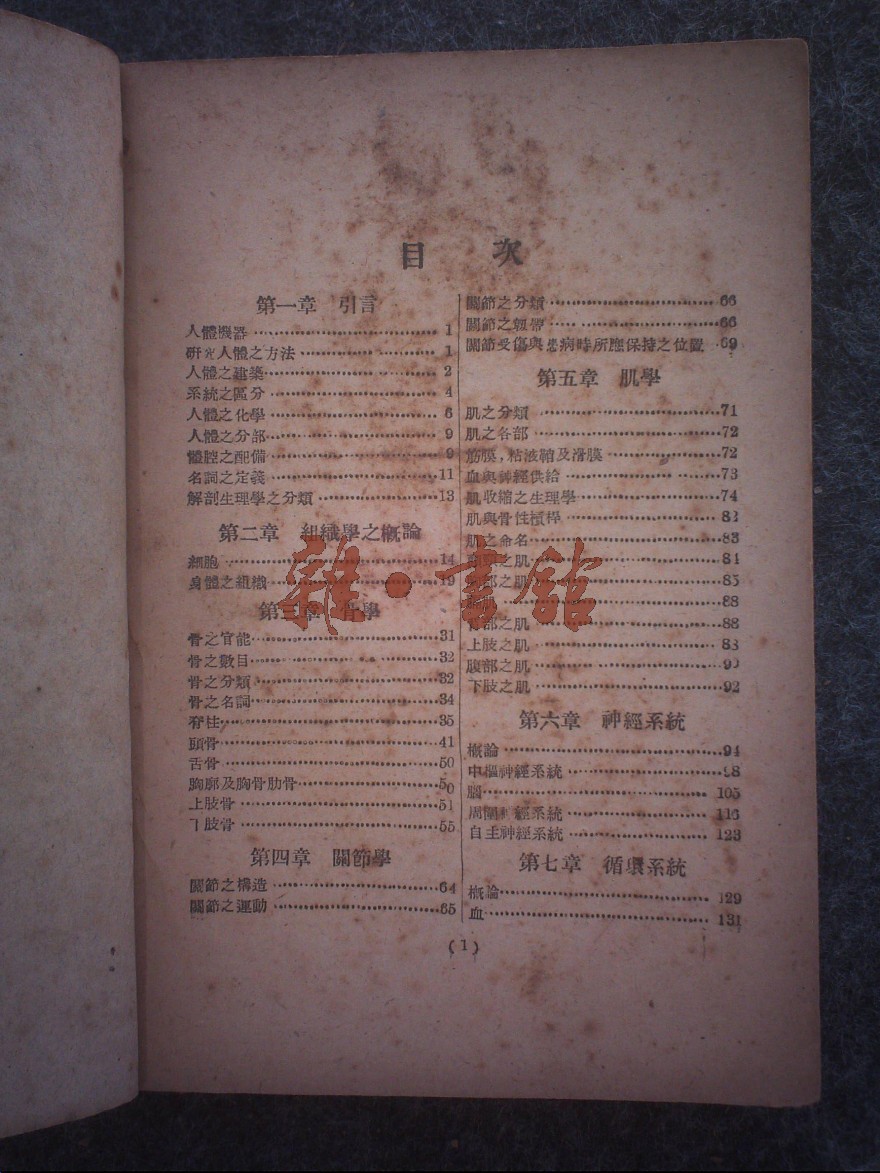 目 次
第一章 引言
人體機器 1
研究人體之方法 1
人體之建築 2
系統之區分 4
人體之化學 6
人體之分部 9
體腔之配備 9
名詞之定義 11
解剖生理學之分類 13
第二章 組織學之概論
細胞 14
身體之組織 19
第三章 骨學
骨之官能 31
骨之數目 32
骨之分類 32
骨之名詞 34
脊柱 35
頭骨 41
舌骨 50
胸廓及胸骨肋骨 50
上肢骨 51
下肢骨 55
第四章 關節學
關節之構造 64
關節之運動 65
關節之分類 66
關節之 66
關節受傷與患病時所應保持之位置 69
第五章 肌學
肌之分類 71
肌之各部 72
筋膜，粘液鞘及滑膜 72
血與神經供給 73
肌收縮之生理學 74
肌與骨性槓桿 83
肌之命名 83
之肌 84
部之肌 85
88
背部之肌 88
上肢之肌 88
腹部之肌 90
下肢之肌 92
第六章 神經系統
概論 94
中樞神經系統 98
腦 105
周圍神經系統 116
自主神經系統 123
第七章 循環系統
概論 129
血 131
(1)
雜·書館